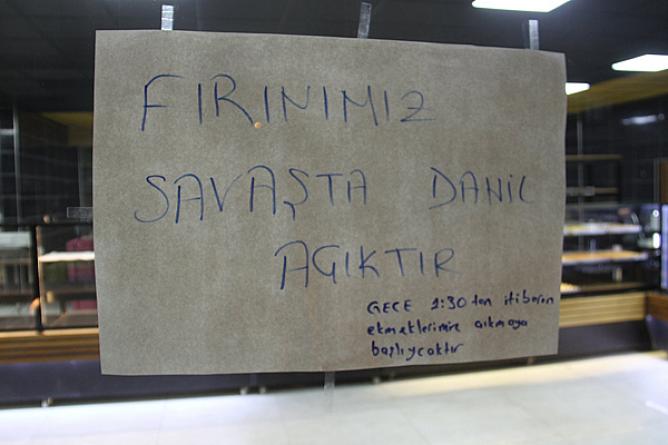 FIRINIMIZ
SAVAŞTA DAHİL
AÇIKTIR
GECE 1:30 tan itibaren
ekmeklerimiz çıkmaya
başlıycaktır